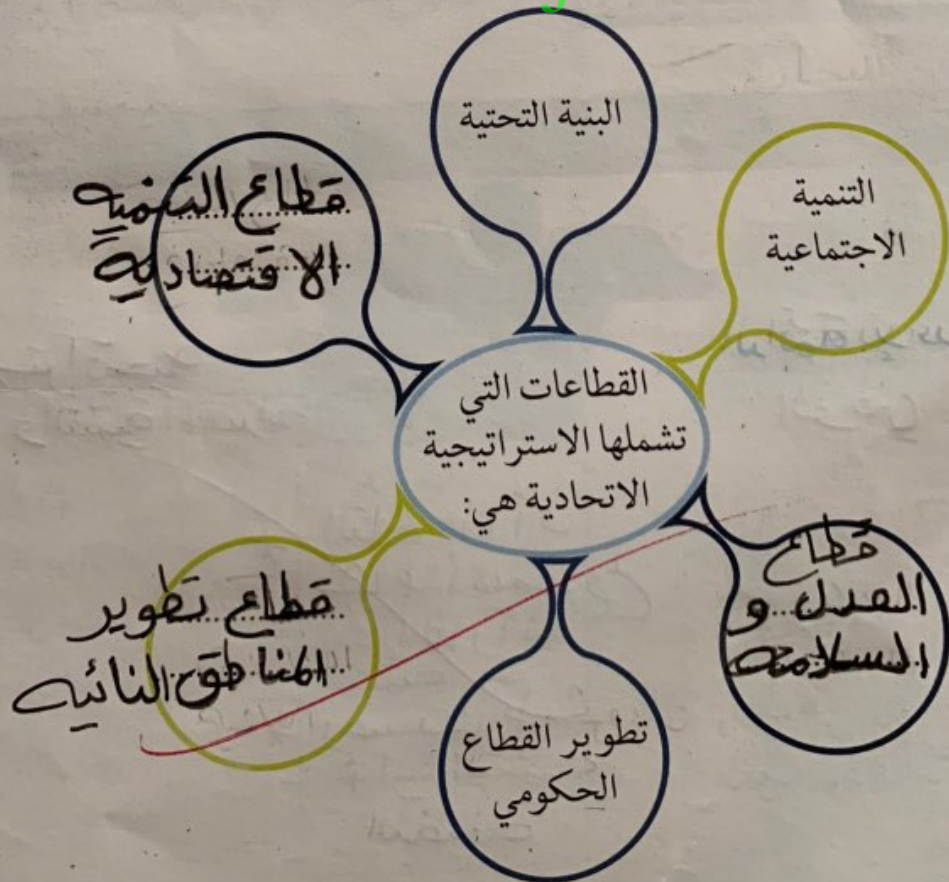 البنية التحتية
التنمية
الاجتماعية
قطاع التنميه
الاقتصادية
القطاعات التي
تشملها الاستراتيجية
الاتحادية هي:
قطاع
العدل و
السلامه
قطاع تطوير
المناطق النائيه
تطوير القطاع
الحكومي